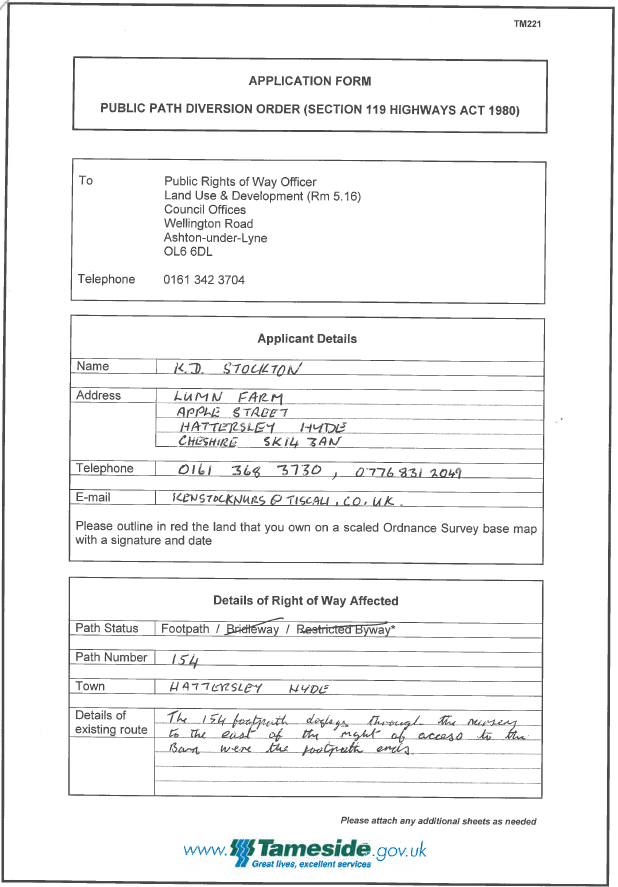 TM221
APPLICATION FORM
PUBLIC PATH DIVERSION ORDER (SECTION 119 HIGHWAYS ACT 1980)
To Public Rights of Way Officer
Land Use & Development (Rm 5.16)
Council Offices
Wellington Road
Ashton-under-Lyne
OL6 6DL
Telephone 0161 342 3704
Applicant Details
Name K.D. STOCKTON
Address LUMN FARM
APPLE STREET
HATTERSLEY HYDE
CHESHIRE SK14 3AN
Telephone 0161 368 3730, 0776 831 2049
E-mail KENSTOCKNURS@TISCALI.CO.UK.
Please outline in red the land that you own on a scaled Ordnance Survey base map
with a signature and date
Details of Right of Way Affected
Path Status Footpath / Bridleway / Restricted Byway*
Path Number 154
Town HATTERSLEY HYDE
Details of
existing route
The 154 footpath doglegs through the nursery
to the east of the right of access to the
Barn were the footpath ends.
Please attach any additional sheets as needed
www.Tameside.gov.uk
Great lives, excellent services